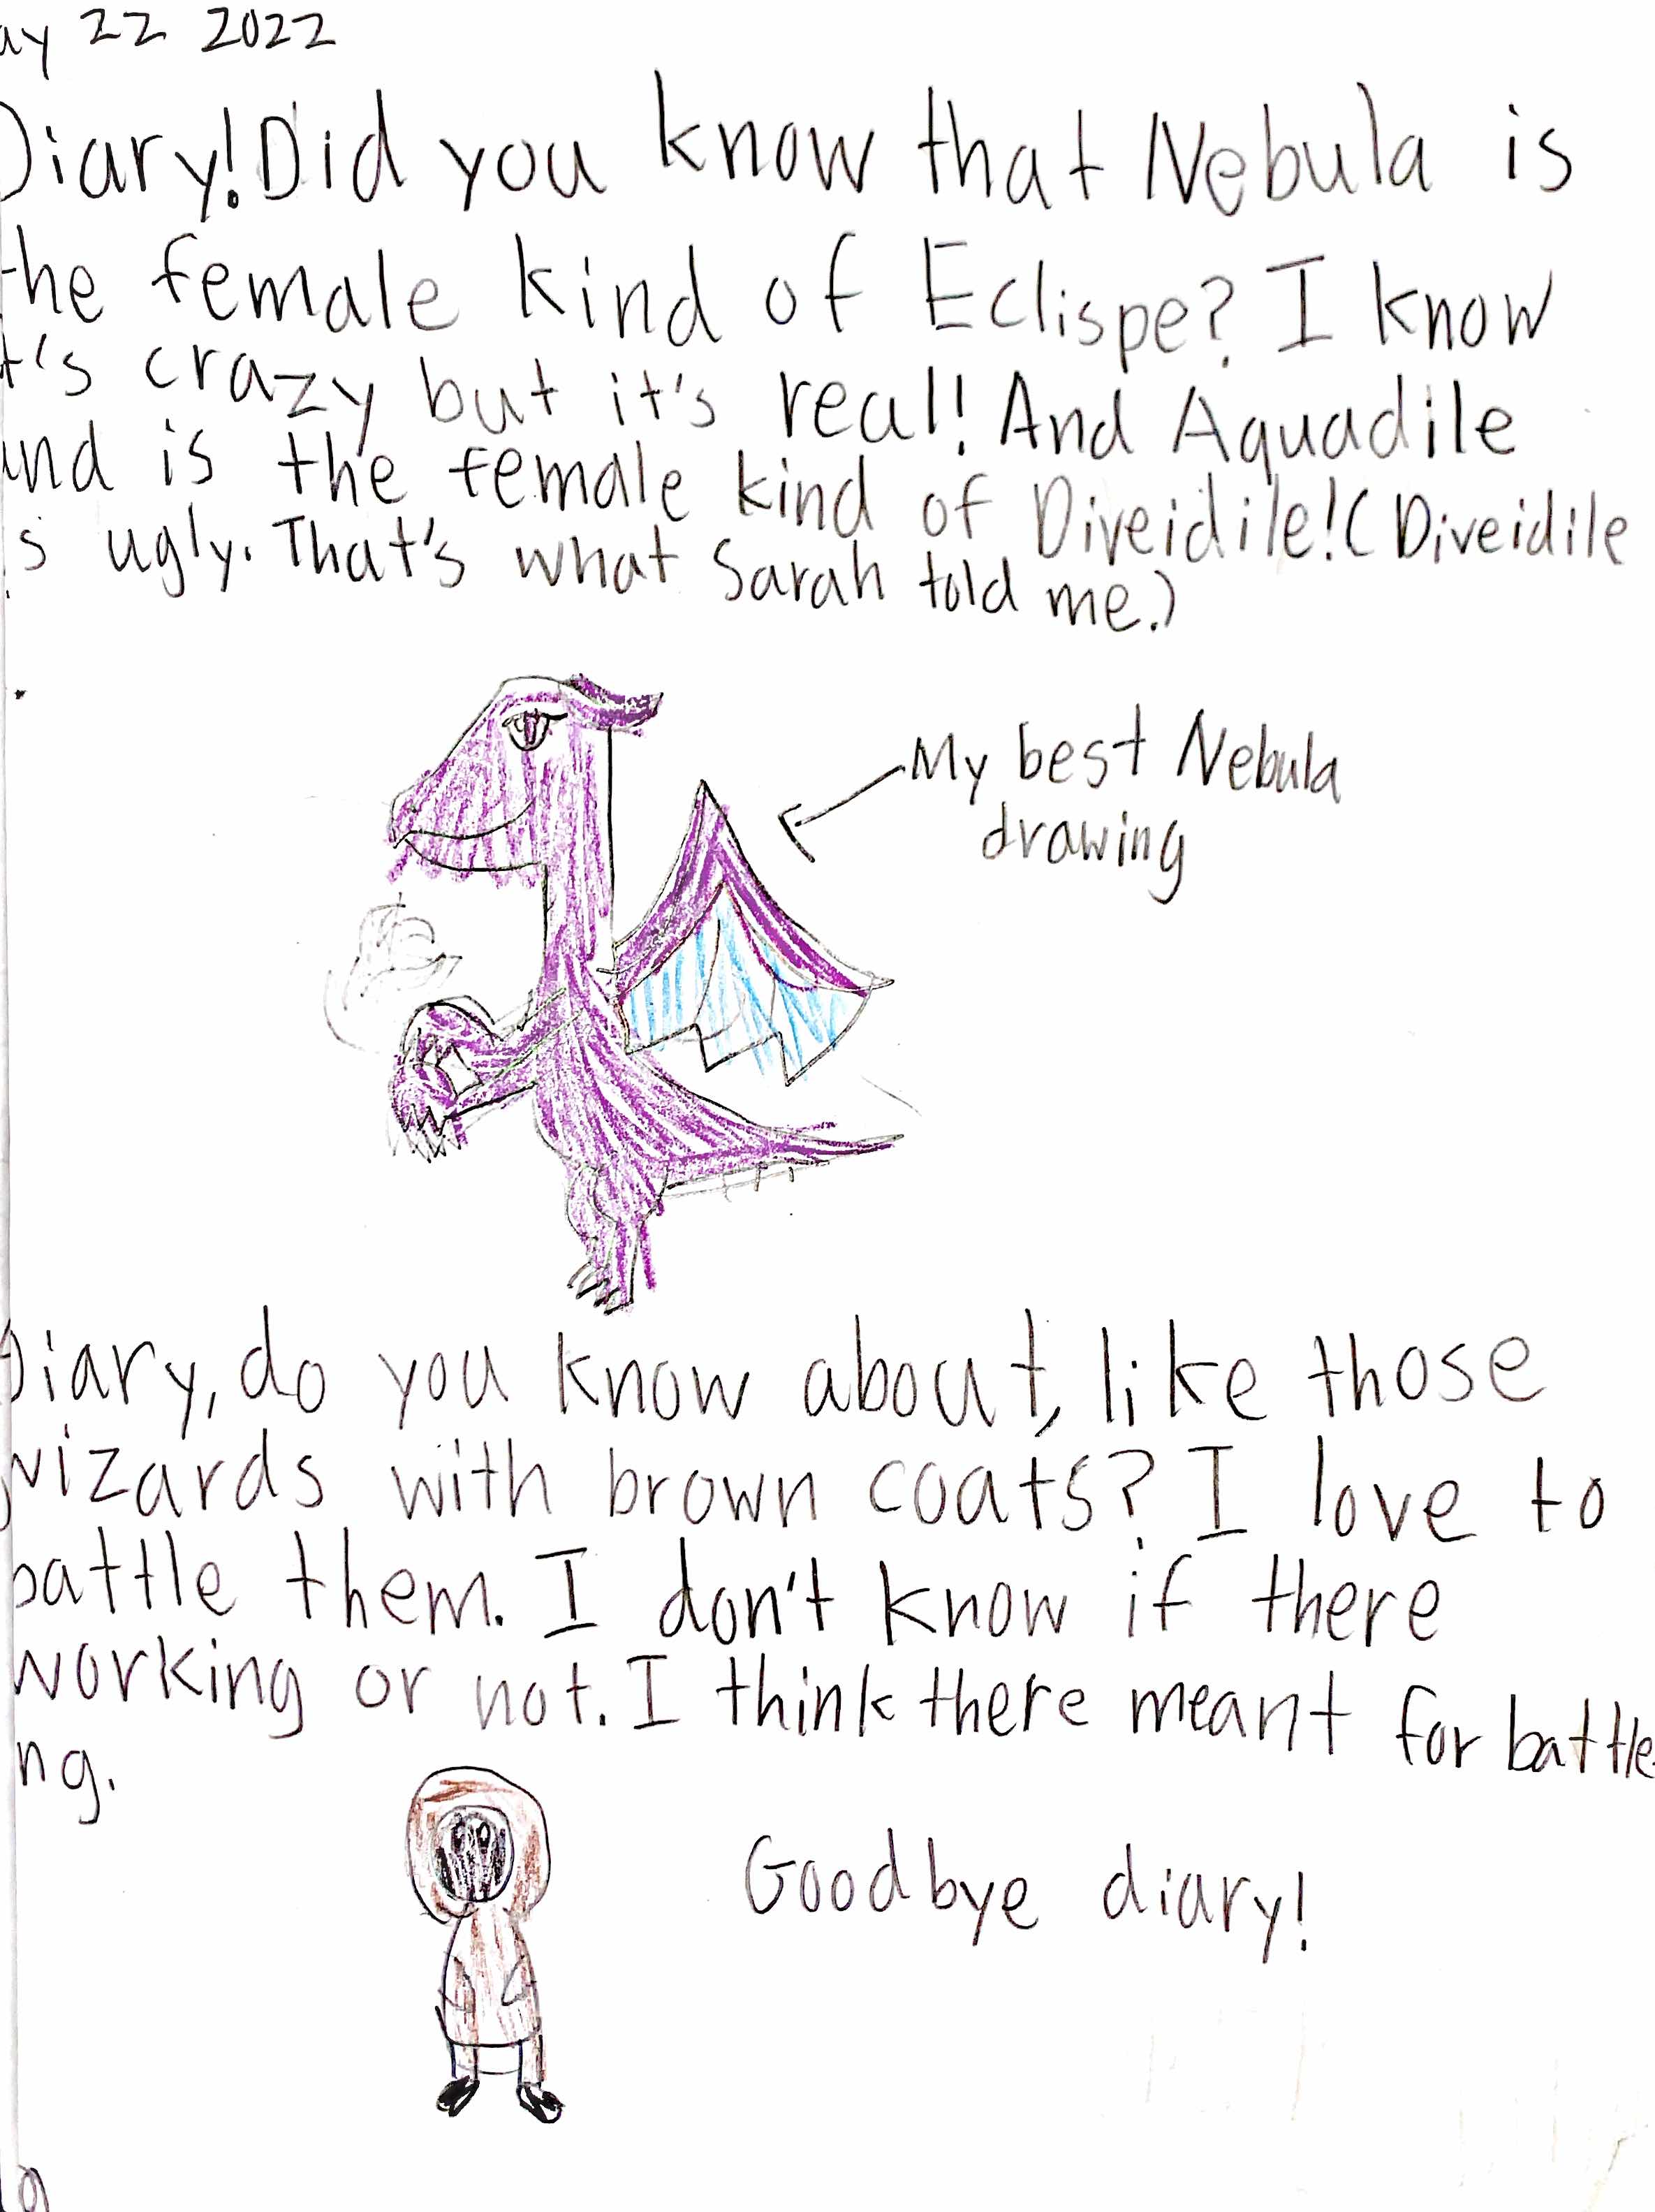 ay 22 2022
Diary! Did you know that Nebula is
the female kind of Eclispe? I know
t's crazy but it's real! And Aquadile
and is the female kind of Diveidile! (Diveidile
is ugly. That's what Sarah told me.)
My best Nebula
drawing
Diary, do you know about, like those
wizards with brown coats? I love to
battle them. I don't know if there
working or not. I think there meant for battle
ng.
Goodbye diary!